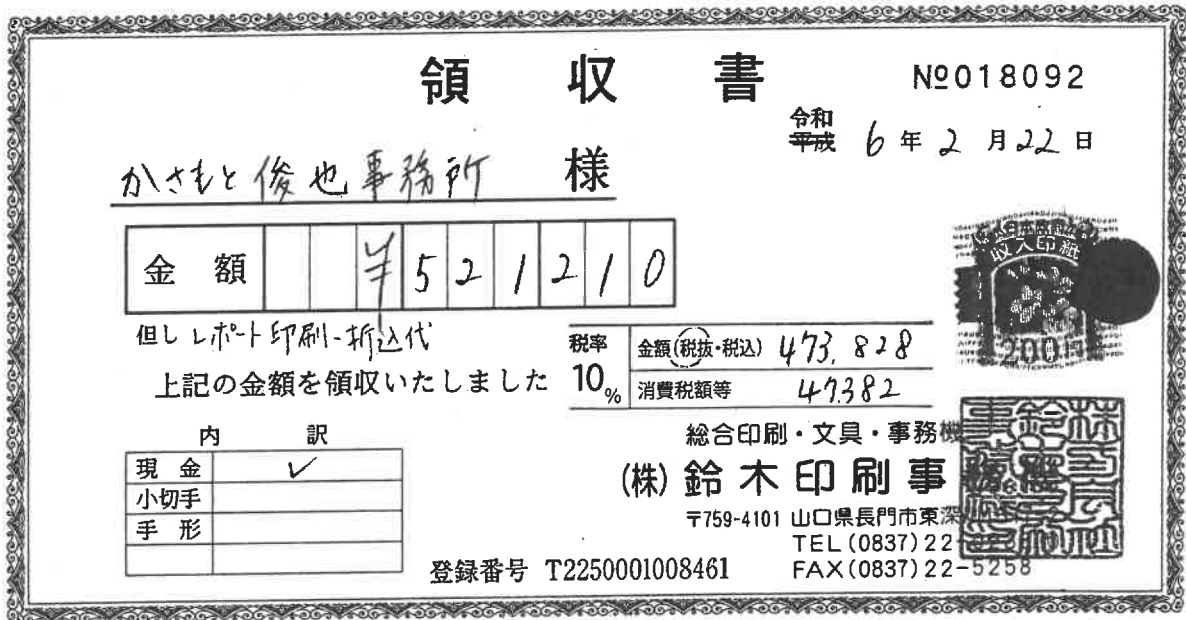 領 収 書
№018092
令和
平成 6年2月22日
かさもと俊也事務所 様
金 額 ¥521210
但し レポート印刷-折込代
上記の金額を領収いたしました
税率 10%
金額(税抜・税込) 473,828
消費税額等 47382
収入印紙
200円
内 訳
現 金 ✓
小切手
手 形
総合印刷・文具・事務機
(株)鈴木印刷事
〒759-4101 山口県長門市東深
TEL(0837)22
FAX(0837)22-5258
登録番号 T2250001008461